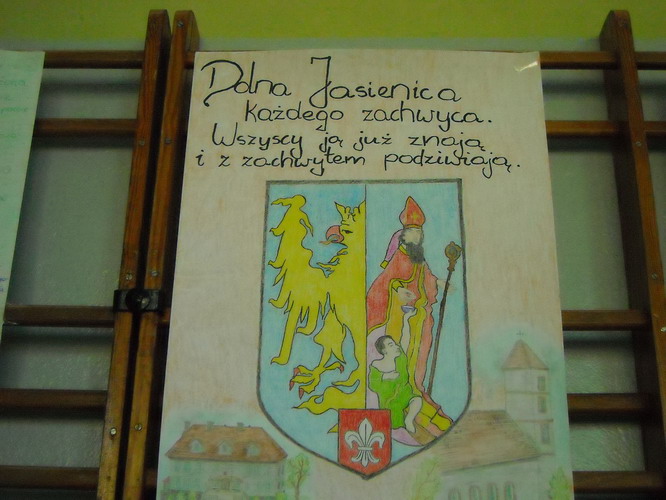 Dolna Jasienica
każdego zachwyca.
Wszyscy ją już znają
i z zachwytem podziwiają.